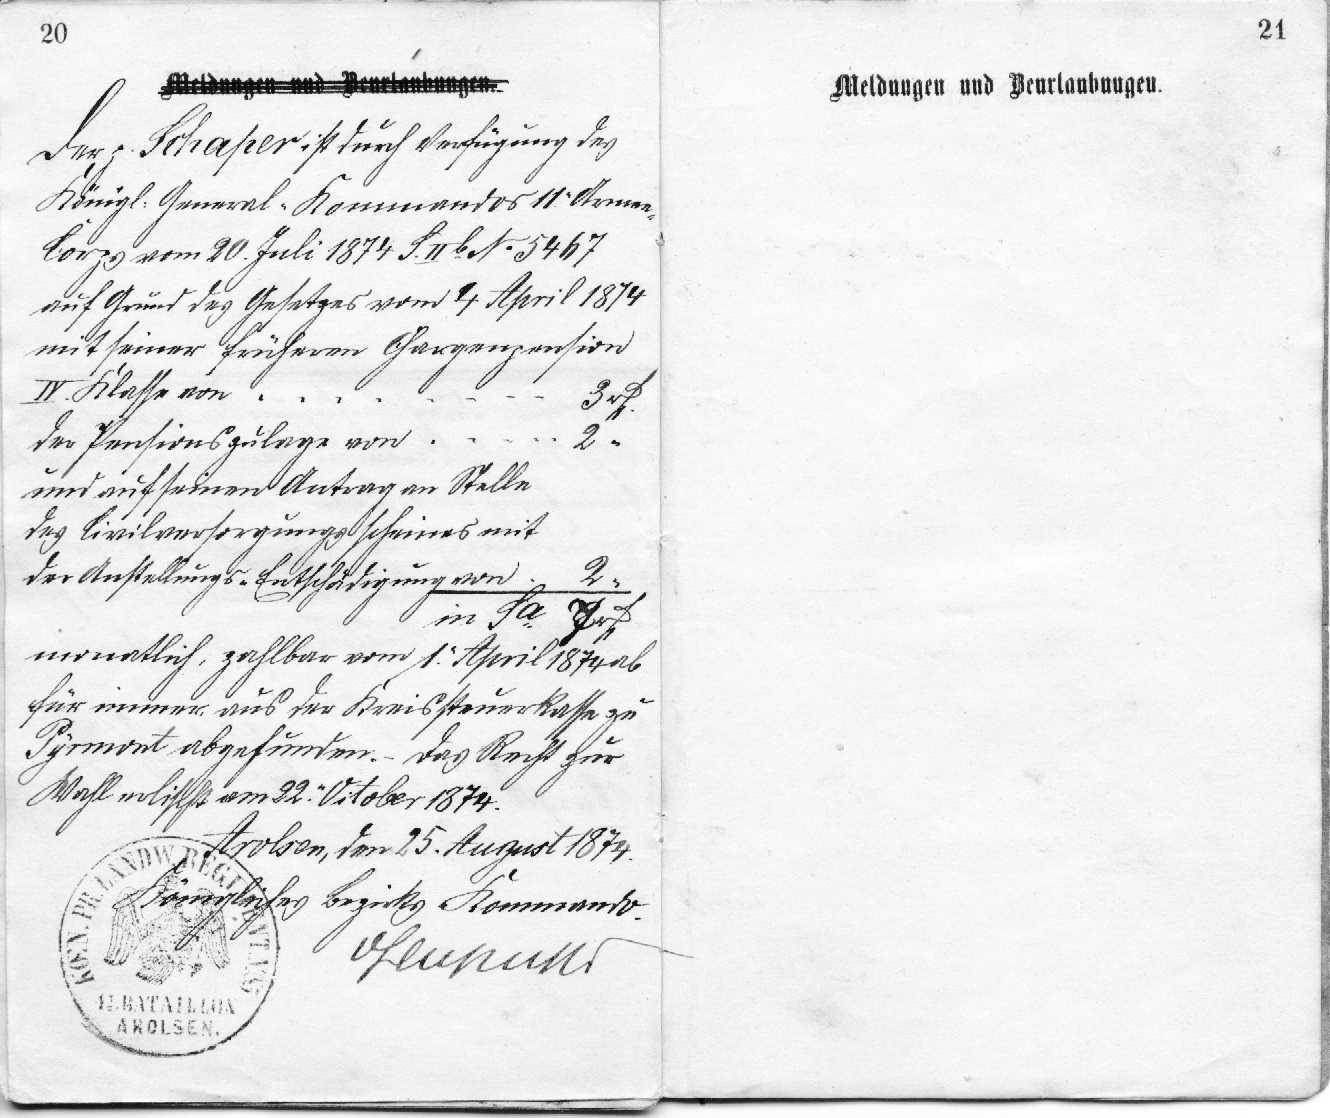 20
Meldungen und Beurlaubungen.
Der p. Schaper ist durch Verfügung des
Königl. General-Kommandos 11. Armee-
Corps vom 20. Juli 1874 S. II b No 5467
auf Grund des Gesetzes vom 4 April 1874
mit seiner früheren Chargenpension
IV. Klasse von . . . . . - - - - 3 rf.
der Pensionszulage von . - - - - - 2 "
und auf seinen Antrag an Stelle
des Civilversorgungsscheines mit
der Anstellungs-Entschädigung von . 2 "
in Sa 7 rf
monatlich, zahlbar vom 1. April 1874 ab
für immer aus der Kreissteuerkasse zu
Pyrmont abgefunden. - Das Recht zur
Wahl erlischt am 22. October 1874.
Arolsen, den 25. August 1874.
Königliches Bezirks Kommando.
KOEN. PR. LANDW. REGT.
II. BATAILLON
AROLSEN.
21
Meldungen und Beurlaubungen.